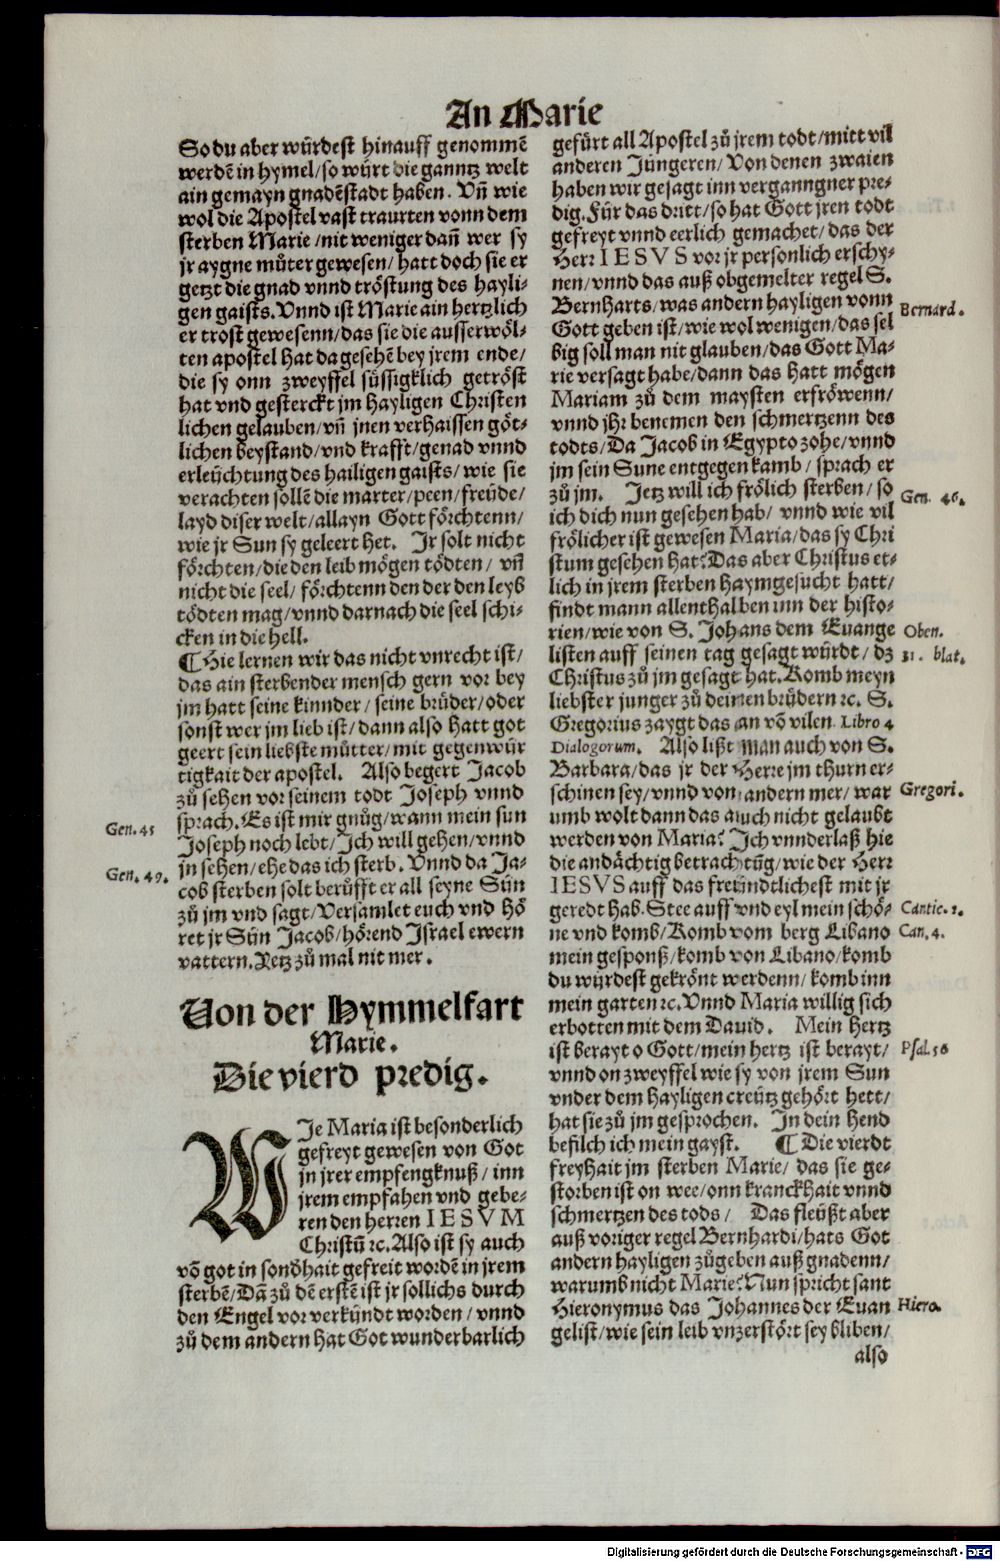 An Marie
So du aber würdest hinauff genommē
werdē in hymel/so würt die ganntz welt
ain gemayn gnadēstadt haben. Vñ wie
wol die Apostel vast traurten vonn dem
sterben Marie/nit weniger dañ wer sy
jr aygne můter gewesen/hatt doch sie er
getzt die gnad vnnd tröstung des hayli-
gen gaists. Vnnd ist Marie ain hertzlich
er trost gewesenn/das sie die ausserwöl-
ten apostel hat da gesehē bey jrem ende/
die sy onn zweyffel süssigklich getröst
hat vnd gesterckt jm hayligen Christen
lichen gelauben/vñ jnen verhaissen göt-
lichen beystand/vnd krafft/genad vnnd
erleüchtung des hailigen gaists/wie sie
verachten sollē die marter/peen/freüde/
layd diser welt/allayn Gott förchtenn/
wie jr Sun sy geleert het. Jr solt nicht
förchten/die den leib mögen tödten/vñ
nicht die seel/förchtenn den der den leyb
tödten mag/vnnd darnach die seel schi-
cken in die hell.
¶ Hie lernen wir das nicht vnrecht ist/
das ain sterbender mensch gern vor bey
jm hatt seine kinnder/seine brüder/oder
sonst wer jm lieb ist/dann also hatt got
geert sein liebste můtter/mit gegenwür
tigkait der apostel. Also begert Jacob
zů sehen vor seinem todt Joseph vnnd
sprach. Es ist mir gnůg/wann mein sun
Gen. 45
Joseph noch lebt/Jch will gehen/vnnd
jn sehen/ehe das ich sterb. Vnnd da Ja-
Gen. 49.
cob sterben solt berůfft er all seyne Sün
zů jm vnd sagt/Versamlet euch vnd hö
ret jr Sün Jacob/hörend Jsrael ewern
vattern. Yetz zů mal nit mer.
Von der Hymmelfart
Marie.
Die vierd predig.
WJe Maria ist besonderlich
gefreyt gewesen von Got
jn jrer empfengknuß/inn
jrem empfahen vnd gebe-
ren den herren IESVM
Christū ꝛc. Also ist sy auch
vō got in sonðhait gefreit wordē in jrem
sterbē/Dañ zů dē erstē ist jr sollichs durch
den Engel vor verkündt worden/vnnd
zů dem andern hat Got wunderbarlich
gefürt all Apostel zů jrem todt/mitt vil
anderen Jüngeren/Von denen zwaien
haben wir gesagt inn verganngner pre-
dig. Für das dritt/so hat Gott jren todt
gefreyt vnnd eerlich gemachet/das der
Herr IESVS vor jr personlich erschy-
nen/vnnd das auß obgemelter regel S.
Bernharts/was andern hayligen vonn
Bernard.
Gott geben ist/wie wol wenigen/das sel
big soll man nit glauben/das Gott Ma-
rie versagt habe/dann das hatt mögen
Mariam zů dem maysten erfröwenn/
vnnd jhr benemen den schmertzenn des
todts/Da Jacob in Egypto zohe/vnnd
jm sein Sune entgegen kamb/sprach er
zů jm. Jetz will ich frölich sterben/so
Gen. 46.
ich dich nun gesehen hab/vnnd wie vil
frölicher ist gewesen Maria/das sy Chri
stum gesehen hat? Das aber Christus et-
lich in jrem sterben haymgesucht hatt/
findt mann allenthalben inn der histo-
rien/wie von S. Johans dem Euange
Oben.
listen auff seinen tag gesagt würdt/dz
31. blat.
Christus zů jm gesagt hat. Komb meyn
liebster junger zů deinen brüdern ꝛc. S.
Gregorius zaygt das an vō vilen. Libro 4
Dialogorum. Also lißt man auch von S.
Barbara/das jr der Herre jm thurn er-
schinen sey/vnnd von andern mer/war
Gregori.
umb wolt dann das auch nicht gelaubt
werden von Maria? Jch vnnderlaß hie
die andächtig betrachtūg/wie der Herr
IESVS auff das freündtlichest mit jr
geredt hab. Stee auff vnd eyl mein schö-
Cantic. 2.
ne vnd komb/Komb vom berg Libano
Can. 4.
mein gesponß/komb von Libano/komb
du würdest gekrönt werdenn/komb inn
mein garten ꝛc. Vnnd Maria willig sich
erbotten mit dem Dauid. Mein hertz
ist berayt o Gott/mein hertz ist berayt/
Psal. 56
vnnd on zweyffel wie sy von jrem Sun
vnder dem hayligen creütz gehört hett/
hat sie zů jm gesprochen. In dein hend
befilch ich mein gayst. ¶ Die vierdt
freyhait jm sterben Marie/das sie ge-
storben ist on wee/onn kranckhait vnnd
schmertzen des tods/ Das fleüßt aber
auß voriger regel Bernhardi/hats Got
andern hayligen zůgeben auß gnadenn/
warumb nicht Marie? Nun spricht sant
Hieronymus das Johannes der Euan
Hiero.
gelist/wie sein leib vnzerstört sey bliben/
also
Digitalisierung gefördert durch die Deutsche Forschungsgemeinschaft - DFG